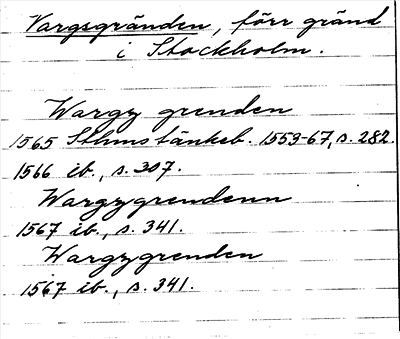 Vargsgränden, förr gränd
i Stockholm.
Wargz grenden
1565 Sthms tänkeb. 1553-67, s. 282.
1566 ib., s. 307.
Wargzgrendenn
1567 ib., s. 341.
Wargzgrenden
1567 ib., s. 341.